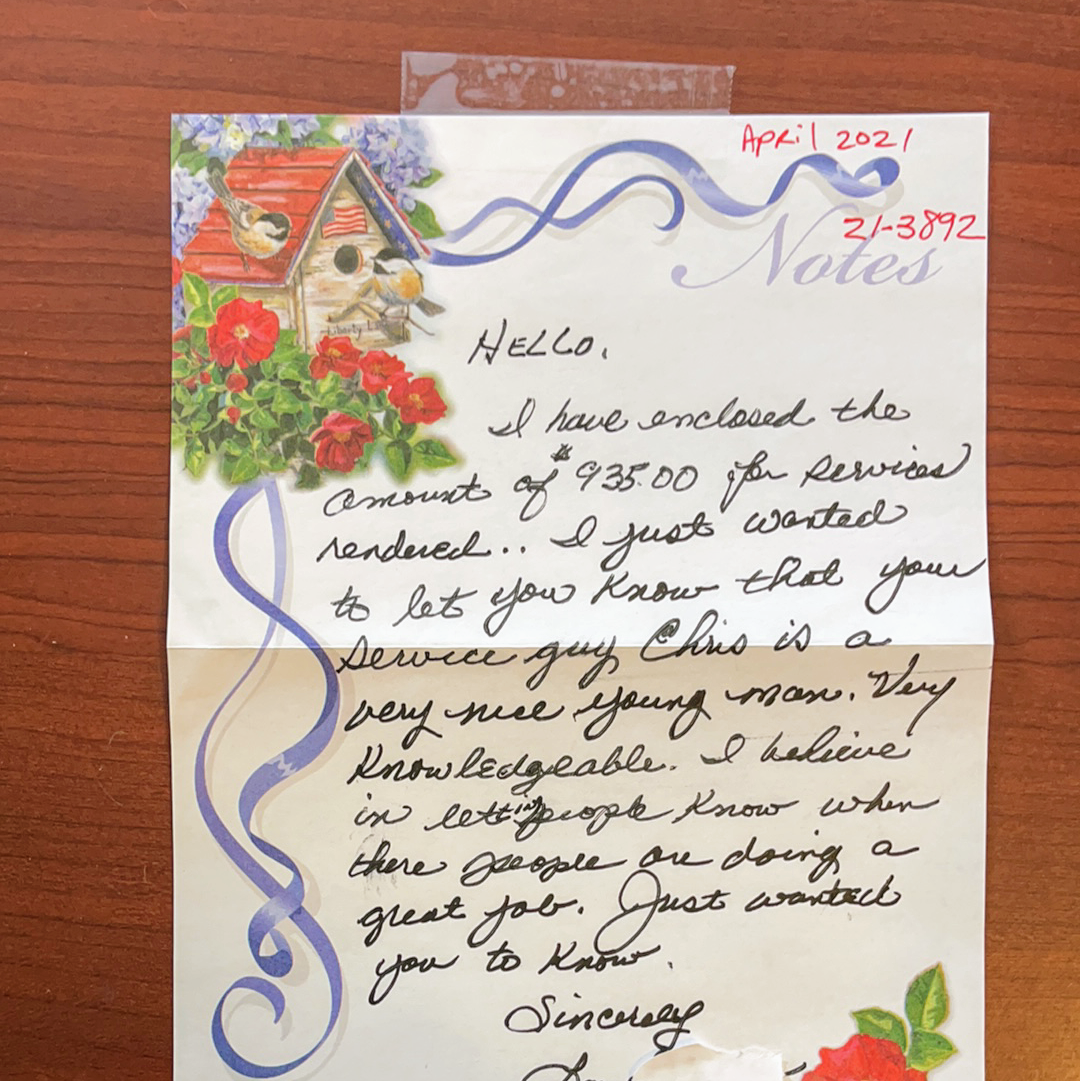 April 2021
21-3892
Notes
HELLO.
I have enclosed the
amount of $935.00 for services
rendered.. I just wanted
to let you know that your
service guy Chris is a
very nice young man. Very
Knowledgeable. I believe
in letting people know when
there people are doing a
great job. Just wanted
you to know.
Sincerely
Liberty